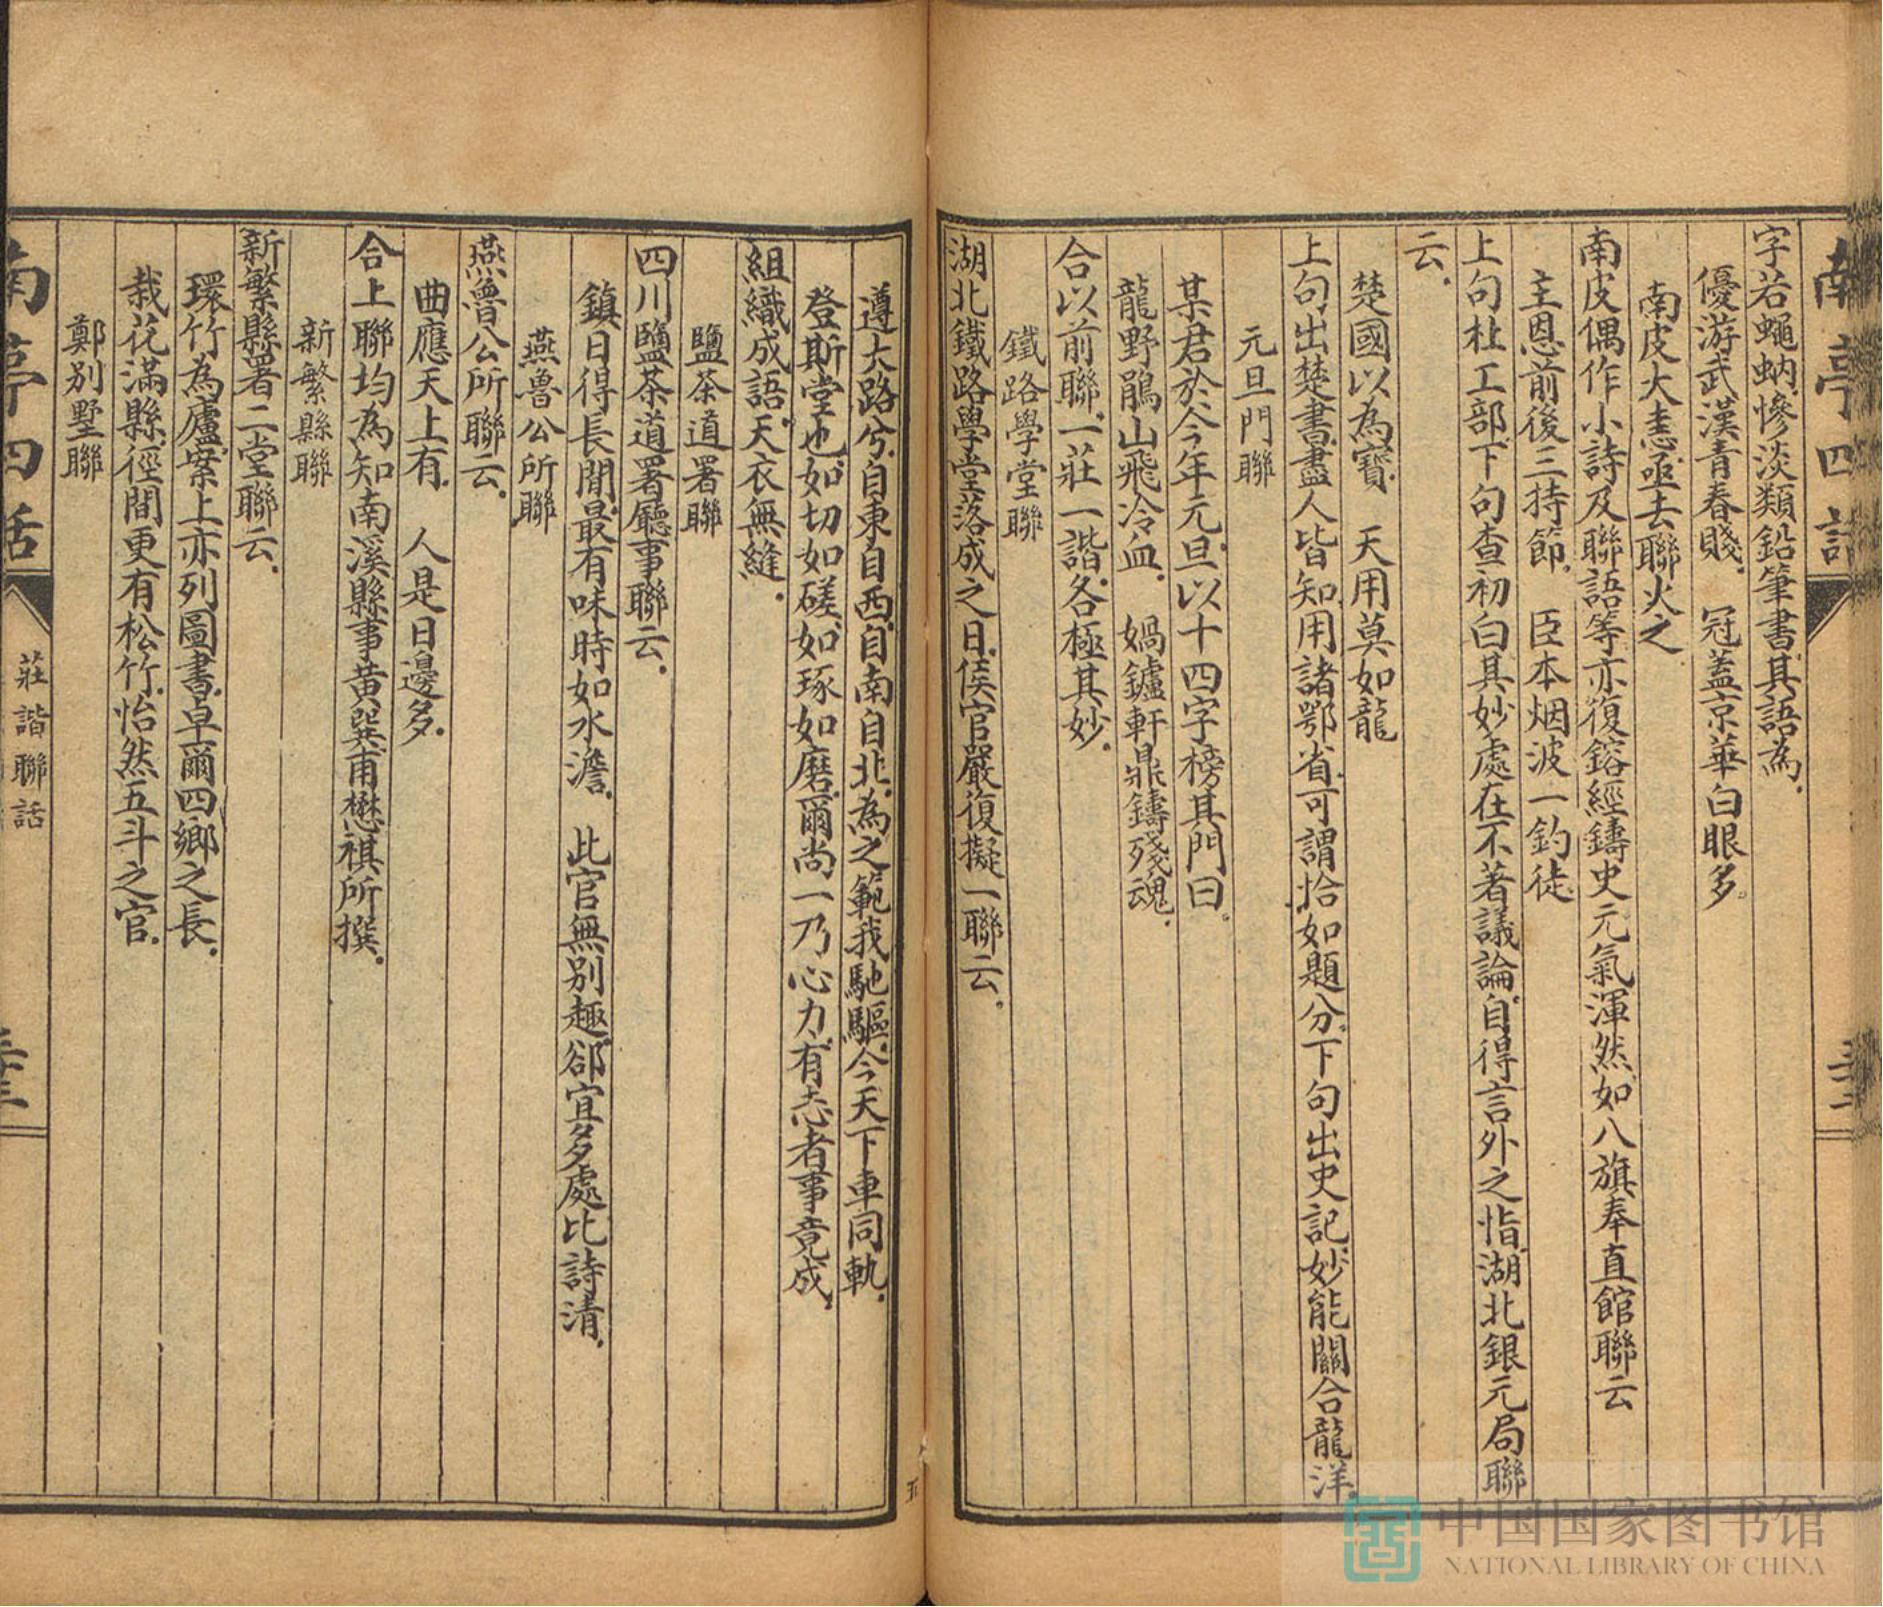 字若蠅蚋慘淡類鉛筆書其語為
優游武漢青春賤 冠蓋京華白眼多
南皮大恚亟去聯火之
南皮偶作小詩及聯語等亦復鎔經鑄史元氣渾然如八旗奉直館聯云
主恩前後三持節 臣本烟波一釣徒
上句杜工部下句查初白其妙處在不著議論自得言外之恉湖北銀元局聯
云
楚國以為寶 天用莫如龍
上句出楚書盡人皆知用諸鄂省可謂拾如題分下句出史記妙能關合龍洋
元旦門聯
某君於今年元旦以十四字榜其門曰
龍野鵑山飛冷血 媧鑪軒鼎鑄殘魂
合以前聯一莊一諧各極其妙
鐵路學堂聯
湖北鐵路學堂落成之日侯官嚴復擬一聯云
遵大路兮自東自西自南自北為之範我馳驅今天下車同軌
登斯堂也如切如磋如琢如磨爾尚一乃心力有志者事竟成
組織成語天衣無縫
鹽茶道署聯
四川鹽茶道署廳事聯云
鎮日得長閒最有味時如水澹 此官無別趣郤宜多處比詩清
燕魯公所聯
燕魯公所聯云
曲應天上有 人是日邊多
合上聯均為知南溪縣事黃巽甫懋祺所撰
新繁縣聯
新繁縣署二堂聯云
環竹為廬案上亦列圖書卓爾四鄉之長
栽花滿縣徑間更有松竹怡然五斗之官
鄭別墅聯
南亭四話
莊諧聯話
中国国家图书馆
NATIONAL LIBRARY OF CHINA